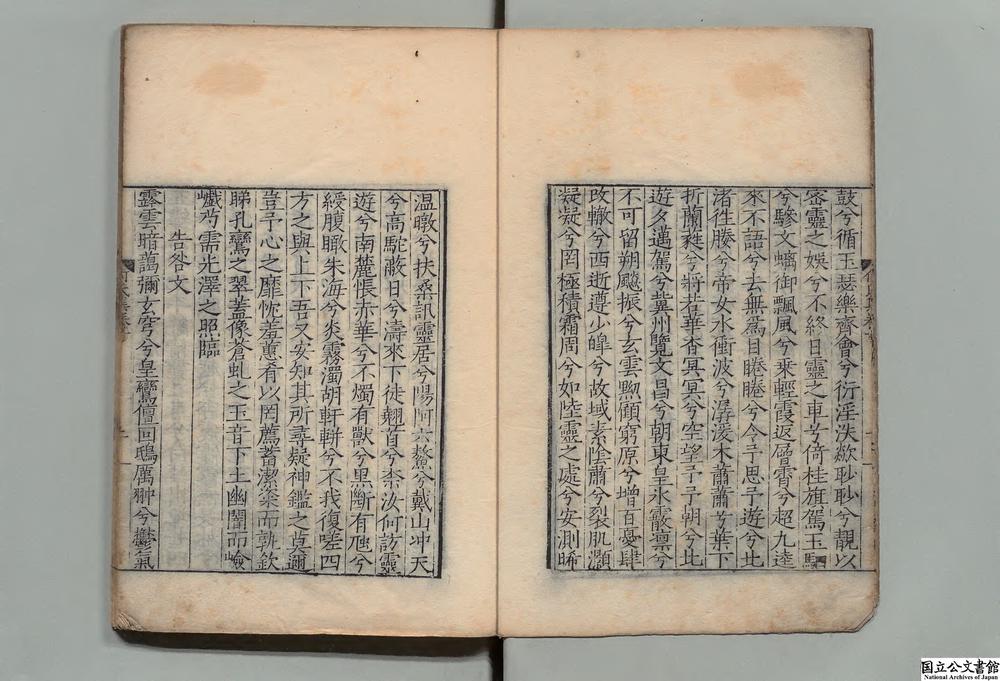 鼓兮循玉瑟樂齊會兮衍淫泆歘眇眇兮靚以
密靈之娛兮不終日靈之車兮倚桂旗駕玉
兮驂文螭御飄風兮乘輕霞返層霄兮超九逵
來不語兮去無為目睠睠兮令予思予遊兮北
渚徃媵兮帝女水衝波兮潺湲木蕭蕭兮葉下
折蘭蕤兮將若華杳冥冥兮空望予予朝兮北
遊夕邁駕兮冀州覽文昌兮朝東皇氷霰禀兮
不可留朔飈振兮玄雲黝顧窮原兮增百憂肆
改轍兮西逝遵少皥兮故域素陰肅兮裂肌灝
凝凝兮罔極積霜周兮如陸靈之處兮安測晞
溫暾兮扶桑訊靈居兮陽阿六鰲兮戴山冲天
兮高駝蔽日兮濤來下徒翹首兮柰汝何訪靈
遊兮南麓悵亦華兮不燭有獸兮黑斷有虺兮
綬腹瞰朱海兮炎霧濁胡軒軿兮不我復嗟四
方之與上下吾又安知其所尋疑神鑑之莫邇
豈予心之靡忱羞蕙肴以罔薦蓄潔粢而執欽
睇孔鸞之翠蓋像蒼虬之玉音下土幽闇而嶮
巇芍需光澤之照臨
告咎文
露雲暗藹彌玄穹兮皇鸞儃回鴟厲翀兮鬱氣
国立公文書館
National Archives of Japan